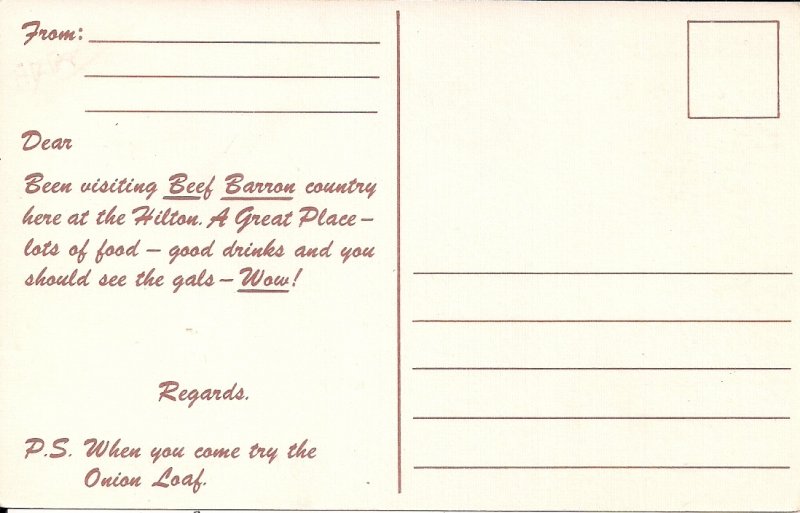 From:
Dear
Been visiting Beef Barron country
here at the Hilton. A Great Place –
lots of food – good drinks and you
should see the gals – Wow!
Regards.
P.S. When you come try the
Onion Loaf.